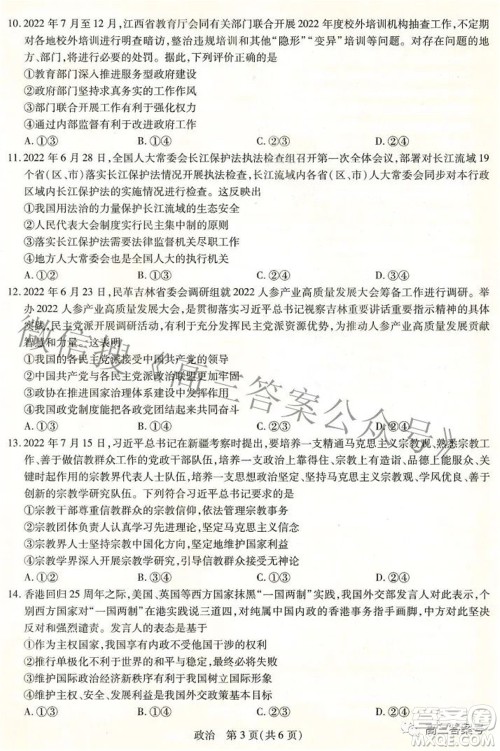 10. 2022 年 7 月至 12 月，江西省教育厅会同有关部门联合开展 2022 年度校外培训机构抽查工作，不定期
对各地校外培训进行明查暗访，整治违规培训和其他“隐形”“变异”培训等问题。对存在问题的地
方、部门，将进行必要的处罚。据此，下列评价正确的是
①教育部门深入推进服务型政府建设
②政府部门坚持求真务实的工作作风
③部门联合开展工作有利于强化权力
④通过内部监督有利于改进政府工作
A. ①③ B. ①④ C. ②③ D. ②④
11. 2022 年 6 月 28 日，全国人大常委会长江保护法执法检查组召开第一次全体会议，部署对长江流域 19
个省(区、市)落实长江保护法的情况开展检查，长江流域各省(区、市)人大常委会同步对本行政
区域内长江保护法的实施情况进行检查。这表明
①我国用法治的力量保护长江流域的生态环境
②人民代表大会制度实行民主集中制的原则
③落实长江保护法需要法律监督机关尽职工作
④地方人大是地方国家权力机关的执行机关
A. ①② B. ①③ C. ②④ D. ③④
12. 2022 年 6 月 23 日，民革吉林省委调研组就 2022 人参产业高质量发展大会筹备工作进行调研。举
办 2022 人参产业高质量发展大会是贯彻落实习近平总书记视察吉林重要讲话重要指示精神的具体
民主党派开展调研活动，有利于充分发挥民主党派资源优势，为推动人参产业高质量发展贡献智慧
和力量。这表明
①我国的各民主党派是致力于社会主义事业的亲密友党
②中国共产党与各民主党派政治联盟的根基越来越牢固
③政协协商在我国政治体系中具有重要作用
④我国政党制度能够把各政党团结起来为共同目标奋斗
A. ①② B. ①④ C. ②③ D. ③④
13. 2022 年 7 月 15 日，习近平总书记在新疆考察时提出，要培养一支精通马克思主义宗教观、熟悉宗教工
作、善于做信教群众工作的党政干部队伍，培养一支政治上靠得住、宗教上有造诣、品德上能服众、关
键时起作用的宗教界代表人士队伍，培养一支思想政治坚定、坚持马克思主义宗教观、学风优良、善于
创新的宗教学研究队伍。下列符合习近平总书记要求的是
①宗教干部尊重信教群众的宗教信仰，做好宗教服务工作
②宗教团体研究人员增强政治意识，坚定马克思主义信念
③宗教界人士坚持宗教中国化方向，切实维护国家利益
④宗教学界深入开展宗教学研究，激发宗教信徒爱国情感
A. ①② B. ①④ C. ②③ D. ③④
14. 香港回归 25 周年之际，美国、英国等西方国家抹黑“一国两制”实践，我国外交部发言人表示，个
别西方国家对“一国两制”在港实践说三道四，对纯属中国内政的香港事务指手画脚，中方对此坚决
反对和强烈谴责。发言人的态度是基于
①作为主权国家，我国有权自主处理内部事务
②推进单极化有利于世界的和平与稳定，最终
③我国坚定维护国际政治经济新秩序有利于各国
④维护国家主权和领土完整是我国外交政策基本目标
A. ①② B. ①④ C. ②③ D. ③④
政治 第 3 页(共 6 页)
微信搜《高三答案公众号》
高三答案号